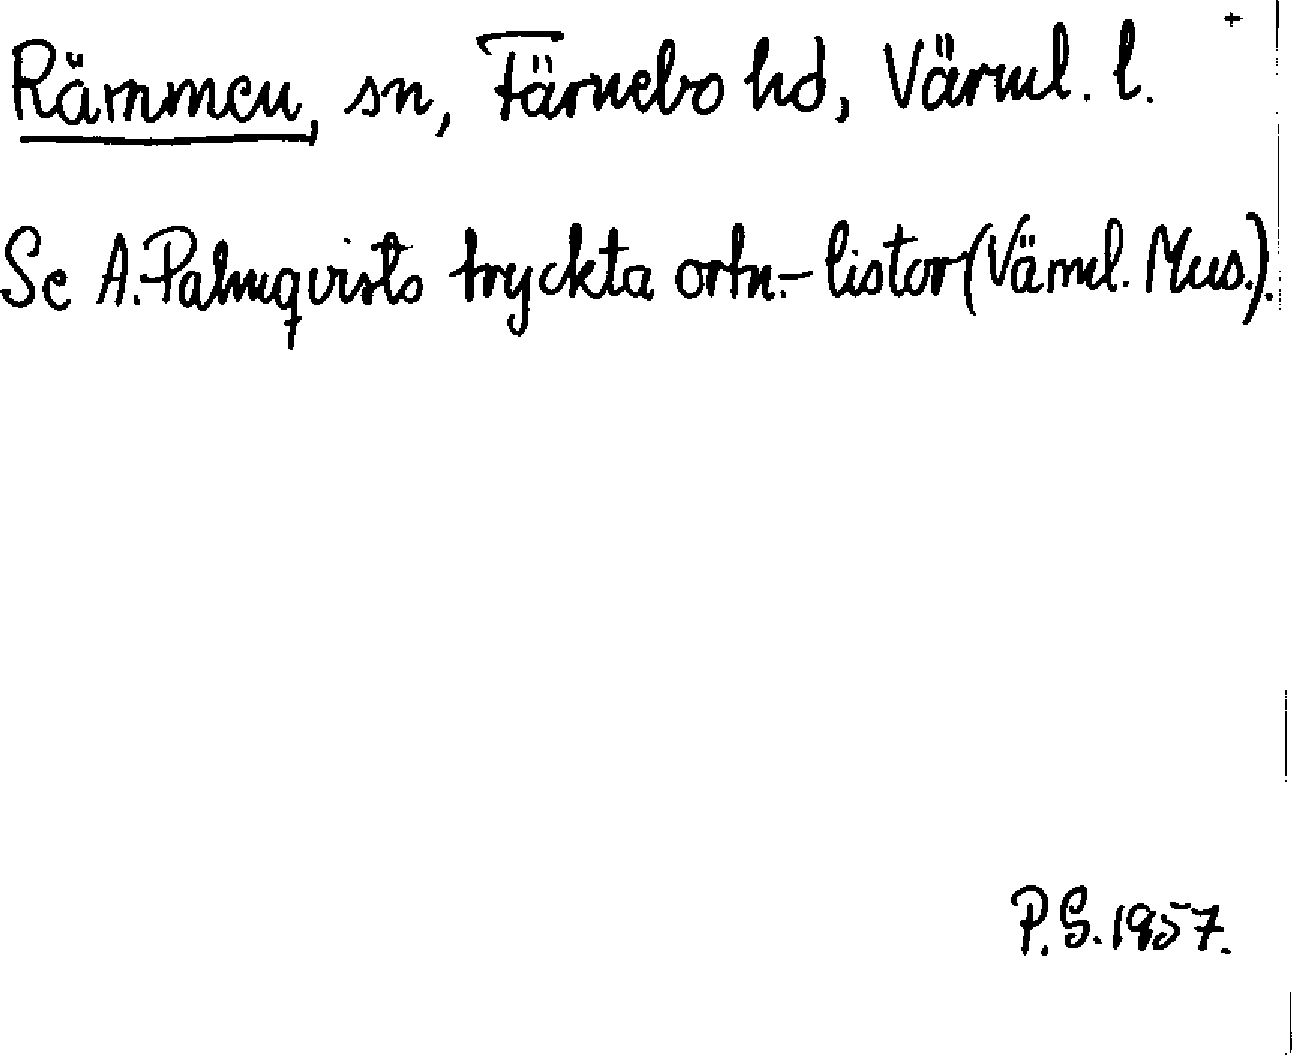 Rämmen, sn, Färnebo hd, Värml. l.
Se A. Palmqvists tryckta ortn.-listor (Värml. Mus.).
P.S. 1957.